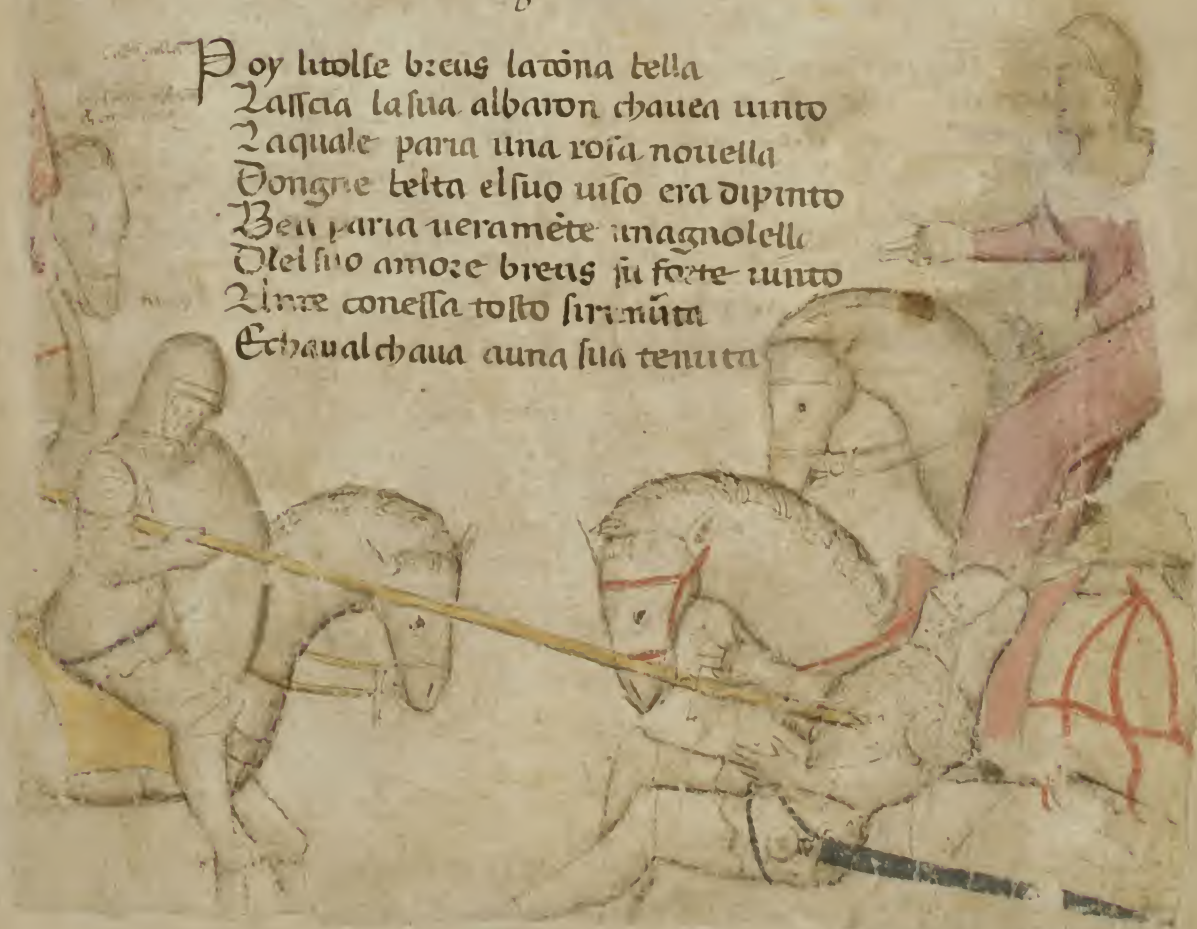 Poy litolse breus ladōna bella
Lasscia lasua albaron chauea uinto
Laquale paria una rosa nouella
Dongne belta elsuo uiso era dipinto
Ben paria ueramēte unagnolella
Dlel suo amore breus fu forte uinto
conessa tosto
Echaualchaua auna sua tenuta